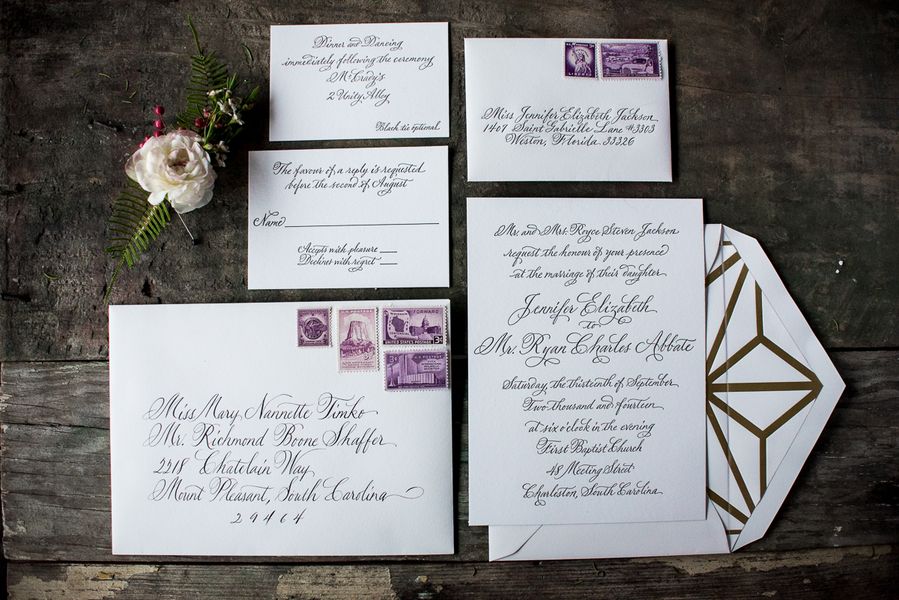 Dinner and Dancing
immediately following the ceremony
McCrady's
2 Unity Alley
Black tie optional
The favour of a reply is requested
before the second of August
Name
Accepts with pleasure
Declines with regret
LIBERTY
Miss Jennifer Elizabeth Jackson
1407 Saint Gabrielle Lane #3303
Weston, Florida 33326
Mr. and Mrs. Royce Steven Jackson
request the honour of your presence
at the marriage of their daughter
Jennifer Elizabeth
to
Mr. Ryan Charles Abbate
Saturday, the thirteenth of September
Two thousand and fourteen
at six o'clock in the evening
First Baptist Church
48 Meeting Street
Charleston, South Carolina
FORWARD
UNITED STATES POSTAGE
3¢
U.S. POSTAGE
Miss Mary Nannette Timko
Mr. Richmond Boone Shaffer
2518 Chatelain Way
Mount Pleasant, South Carolina
29464